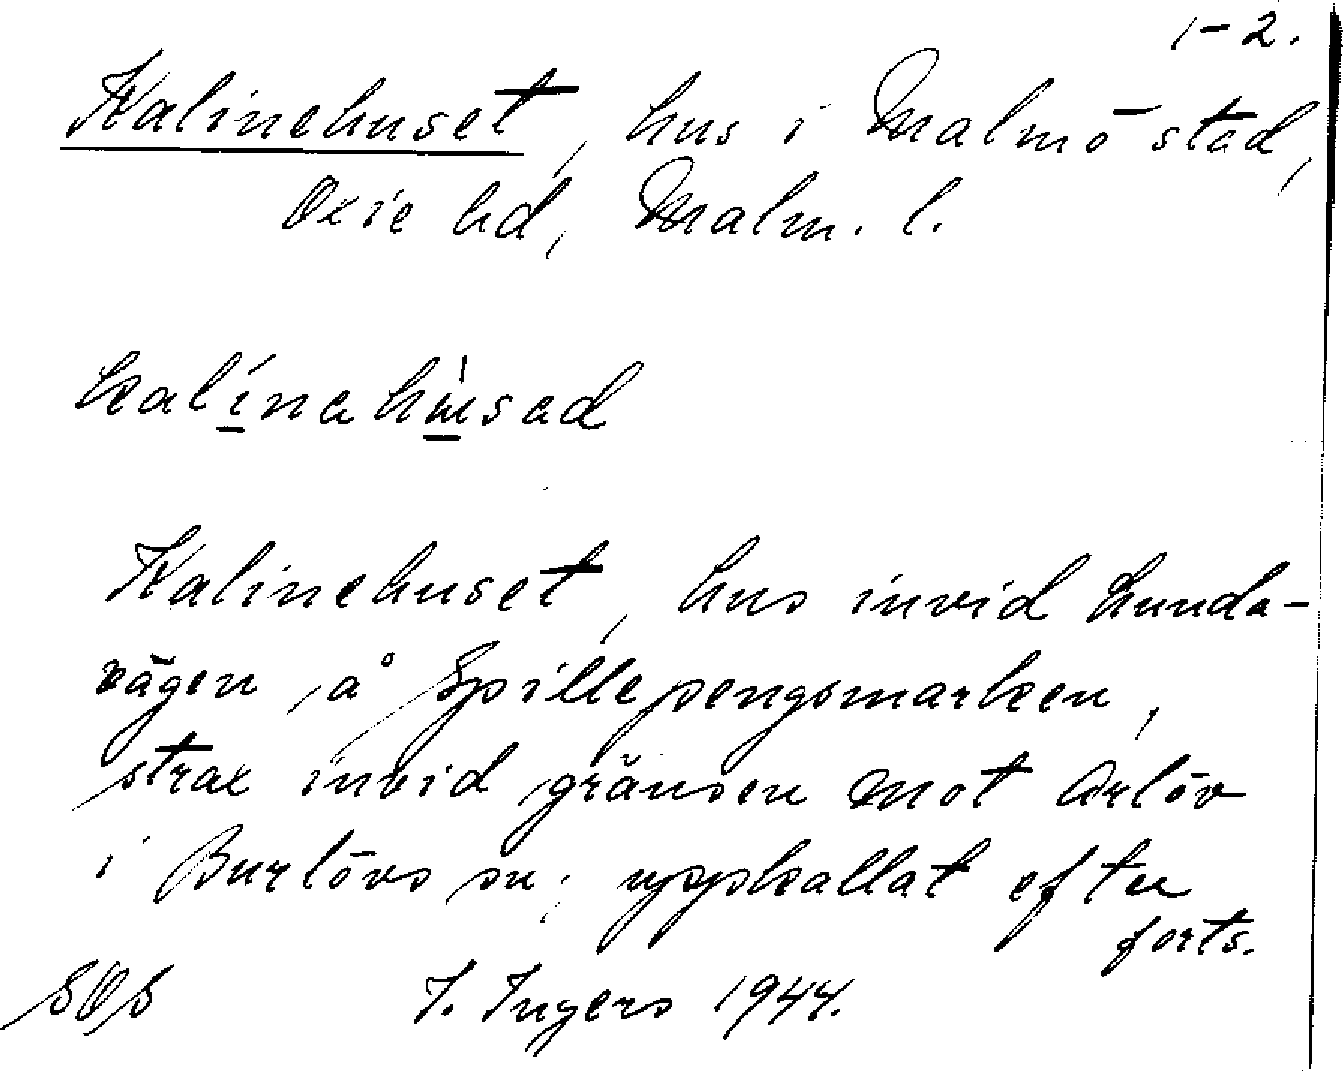 1-2.
Kalinehuset, hus i Malmö stad,
Oxie hd, Malm. l.
kalínahùsad
Kalinehuset, hus invid Lunda-
vägen å Spillepengsmarken,
strax invid gränsen mot Arlöv
i Burlövs sn; uppkallat efter
forts.
SOS I. Ingers 1944.